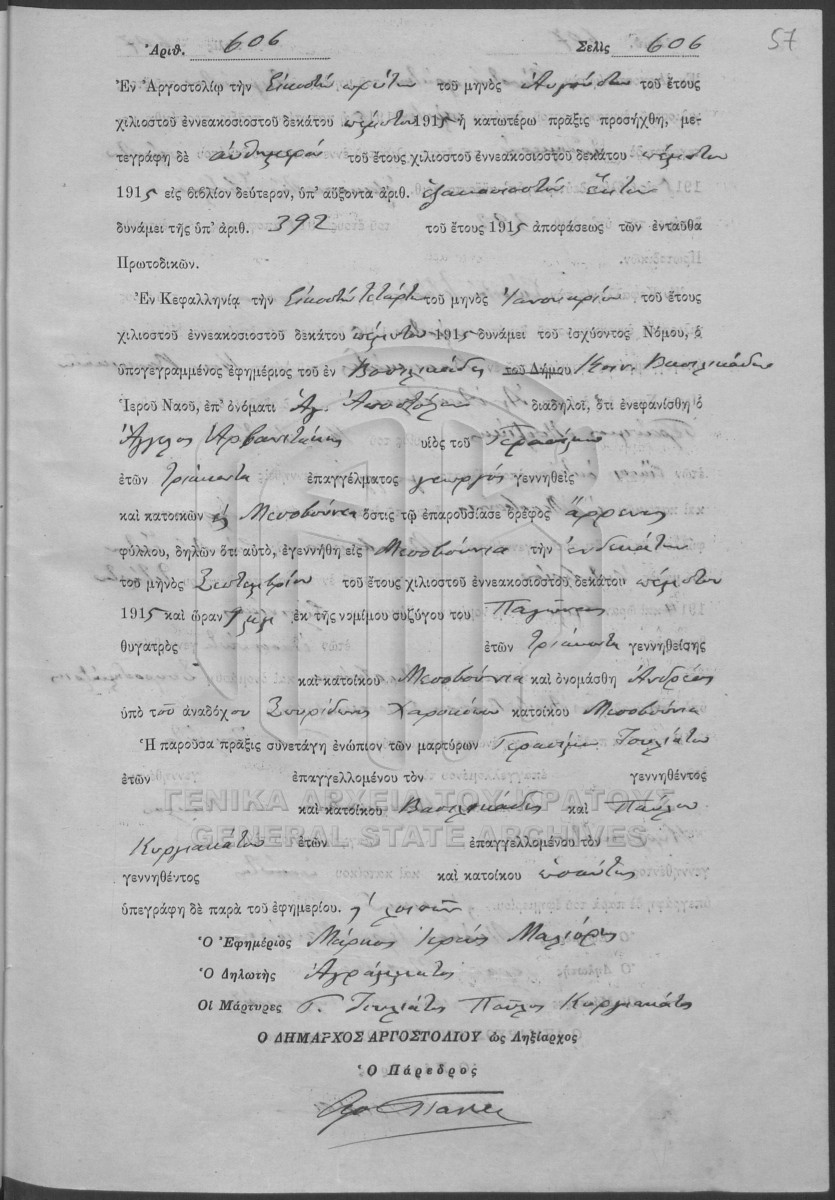 Ἀριθ. 606 Σελὶς 606 57
Ἐν Ἀργοστολίῳ τὴν Εἰκοστὴν πρώτην τοῦ μηνὸς Αὐγούστου τοῦ ἔτους
χιλιοστοῦ ἐννεακοσιοστοῦ δεκάτου πέμπτου 1915 ἡ κατωτέρω πρᾶξις προσήχθη, με-
τεγράφη δὲ αὐθημερόν τοῦ ἔτους χιλιοστοῦ ἐννεακοσιοστοῦ δεκάτου πέμπτου
1915 εἰς βιβλίον δεύτερον, ὑπ' αὔξοντα ἀριθ. ἑξακοσιοστὸν ἕκτον
δυνάμει τῆς ὑπ' ἀριθ. 392 τοῦ ἔτους 1915 ἀποφάσεως τῶν ἐνταῦθα
Πρωτοδικῶν.
Ἐν Κεφαλληνίᾳ τὴν Εἰκοστὴν Τετάρτην τοῦ μηνὸς Ἰανουαρίου τοῦ ἔτους
χιλιοστοῦ ἐννεακοσιοστοῦ δεκάτου πέμπτου 1915 δυνάμει τοῦ ἰσχύοντος Νόμου, ὁ
ὑπογεγραμμένος ἐφημέριος τοῦ ἐν Βασιλικάδες τοῦ Δήμου Κοιν. Βασιλικάδων
Ἱεροῦ Ναοῦ, ἐπ' ὀνόματι Ἁγ. Ἀποστόλων διαδηλοῖ, ὅτι ἐνεφανίσθη ὁ
Ἄγγελος Ἀρβανιτάκης υἱὸς τοῦ Γερασίμου
ἐτῶν τριάκοντα ἐπαγγέλματος γεωργός γεννηθεὶς
καὶ κατοικῶν εἰς Μεσοβούνια ὅστις τῷ ἐπαρουσίασε βρέφος ἄρρενος
φύλλου, δηλῶν ὅτι αὐτὸ, ἐγεννήθη εἰς Μεσοβούνια τὴν ἑνδεκάτην
τοῦ μηνὸς Σεπτεμβρίου τοῦ ἔτους χιλιοστοῦ ἐννεακοσιοστοῦ δεκάτου πέμπτου
1915 καὶ ὥραν ἐκ τῆς νομίμου συζύγου του
θυγατρὸς ἐτῶν τριάκοντα γεννηθείσης
καὶ κατοίκου Μεσοβούνια καὶ ὀνομάσθη Ἀνδρέας
ὑπὸ τοῦ ἀναδόχου Σπυρίδωνος κατοίκου Μεσοβούνια
Ἡ παροῦσα πρᾶξις συνετάγη ἐνώπιον τῶν μαρτύρων Γερασίμου
ἐτῶν ἐπαγγελλομένου τὸν γεννηθέντος
καὶ κατοίκου Βασιλικάδες καὶ Παύλου
ἐτῶν ἐπαγγελλομένου τὸν
γεννηθέντος καὶ κατοίκου ὡσαύτως
ὑπεγράφη δὲ παρὰ τοῦ ἐφημερίου.
Ὁ Ἐφημέριος Μάρκος Ἱερεὺς
Ὁ Δηλωτὴς Ἀγράμματος
Οἱ Μάρτυρες Γ. Παῦλος
Ο ΔΗΜΑΡΧΟΣ ΑΡΓΟΣΤΟΛΙΟΥ ὡς Ληξίαρχος
Ὁ Πάρεδρος
ΓΕΝΙΚΑ ΑΡΧΕΙΑ ΤΟΥ ΚΡΑΤΟΥΣ
GENERAL STATE ARCHIVES